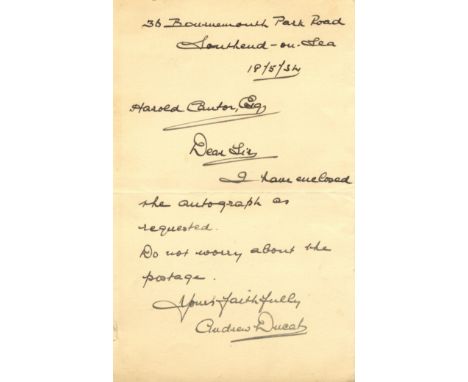 36 Bournemouth Park Road
Southend-on-Sea
18/5/34
Harold Cantor, Esq
Dear Sir,
I have enclosed
the autograph as
requested.
Do not worry about the
postage.
Yours faithfully
Andrew Ducat